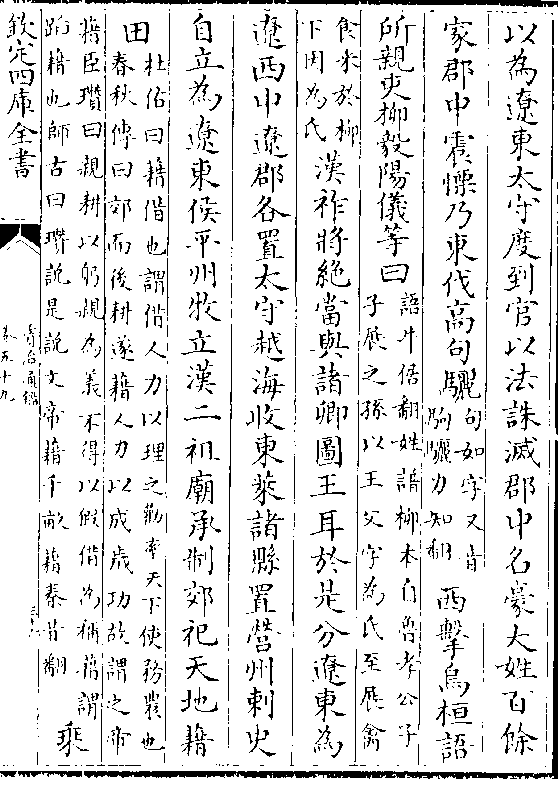 以為遼東太守度到官以法誅滅郡中名豪大姓百餘
家郡中震慄乃東伐高句驪句如字又音駒驪力知翻西擊烏桓語
所親吏柳毅陽儀等曰語牛倨翻姓譜柳本自魯孝公子子展之孫以王父字為氏至展禽
食采於柳下因為氏漢祚將絶當與諸卿圖王耳於是分遼東為
遼西中遼郡各置太守越海收東萊諸縣置營州刺史
自立為遼東侯平州牧立漢二祖廟承制郊祀天地藉
田杜佑曰藉借也謂借人力以理之勸率天下使務農也春秋傳曰郊而後耕遂藉人力以成歲功故謂之帝
藉臣瓚曰親耕以躬親為義不得以假借為稱藉謂蹈藉也師古曰瓚說是說文帝藉千畝藉秦昔翻乘
欽定四庫全書
資治通鑑
卷五十九